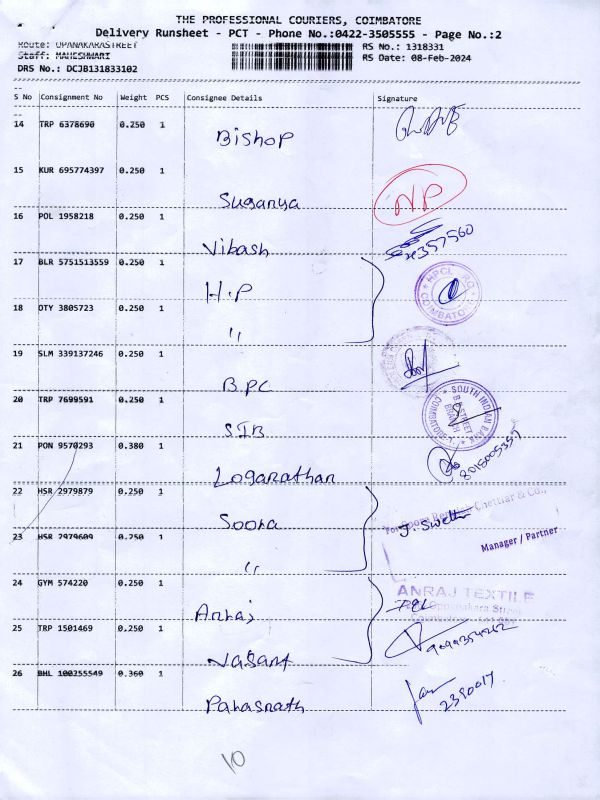 THE PROFESSIONAL COURIERS, COIMBATORE
Delivery Runsheet - PCT - Phone No.:0422-3505555 - Page No.:2
Route: OPANAKARASTREET
RS No.: 1318331
Staff: MAHESHWARI
RS Date: 08-Feb-2024
DRS No.: DCJB131833102
S No Consignment No Weight PCS Consignee Details Signature
14 TRP 6378690 0.250 1
Bishop
15 KUR 695774397 0.250 1
Suganya
NP
16 POL 1958218 0.250 1
Vikash
357560
17 BLR 5751513559 0.250 1
H.P
HPCL RO
COIMBATORE
18 OTY 3805723 0.250 1
"
19 SLM 339137246 0.250 1
B.P.C
20 TRP 7699591 0.250 1
SIB
SOUTH INDIAN BANK
COIMBATORE-1
21 PON 9570293 0.380 1
Loganathan
8015005359
22 HSR 2979879 0.250 1
Soora
Chettiar & Co.,
23 HSR 2979609 0.250 1
"
Manager / Partner
24 GYM 574220 0.250 1
Anraj
ANRAJ TEXTILE
Oppanakara Street
25 TRP 1501469 0.250 1
Vasant
26 BHL 100255549 0.360 1
Parasnath
2390017
10